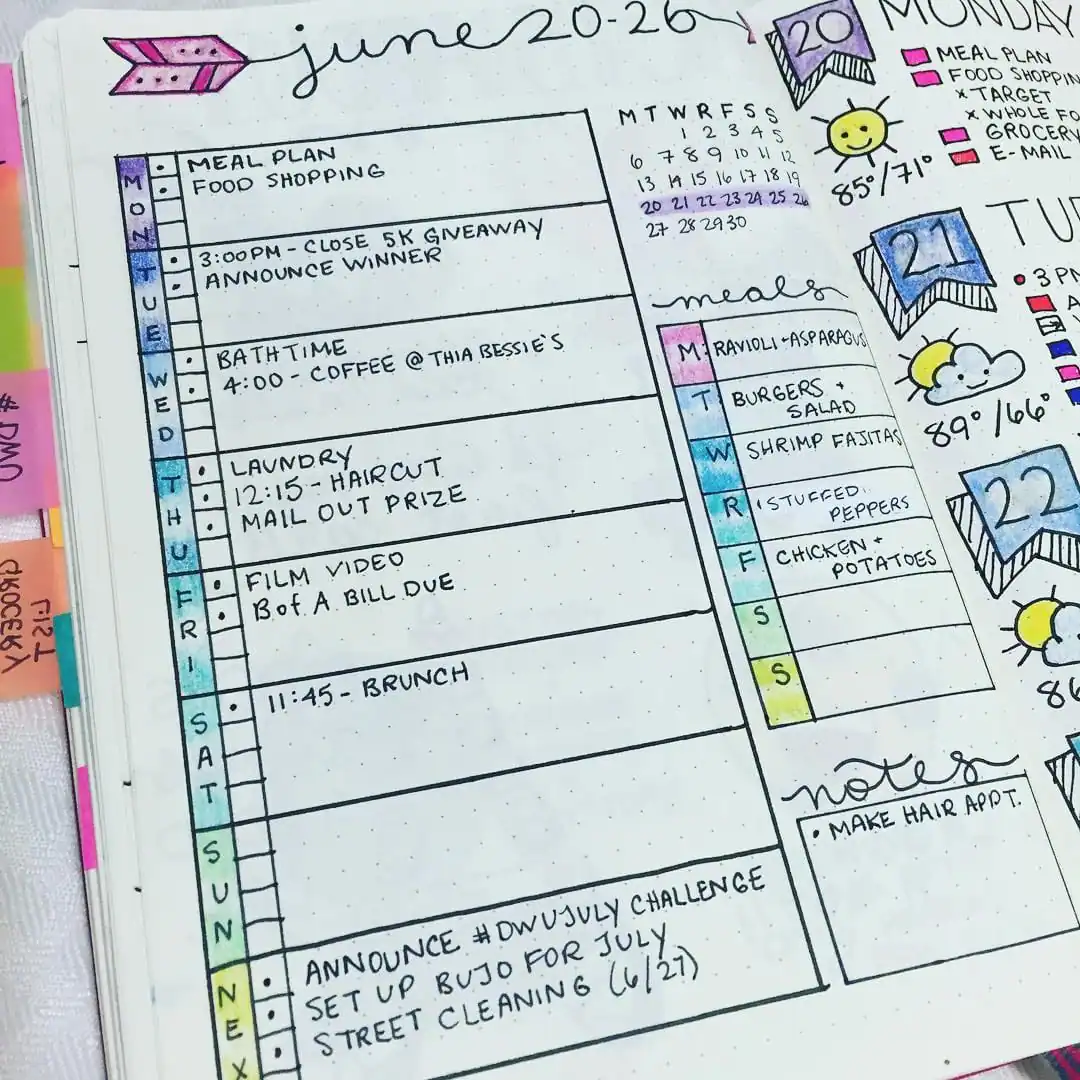 june 20-26
M
O
N
MEAL PLAN
FOOD SHOPPING
T
U
E
3:00PM - CLOSE 5K GIVEAWAY
ANNOUNCE WINNER
W
E
D
BATHTIME
4:00 - COFFEE @ THIA BESSIE'S
T
H
U
LAUNDRY
12:15 - HAIRCUT
MAIL OUT PRIZE
F
R
I
FILM VIDEO
B of A BILL DUE
S
A
T
11:45 - BRUNCH
S
U
N
N
E
X
ANNOUNCE #DWUJULY CHALLENGE
SET UP BUJO FOR JULY
STREET CLEANING (6/27)
M T W R F S S
1 2 3 4 5
6 7 8 9 10 11 12
13 14 15 16 17 18 19
20 21 22 23 24 25 26
27 28 29 30
meals
M RAVIOLI + ASPARAGUS
T BURGERS +
SALAD
W SHRIMP FAJITAS
R STUFFED
PEPPERS
F CHICKEN +
POTATOES
S
S
notes
• MAKE HAIR APPT.
20 MONDAY
MEAL PLAN
FOOD SHOPPIN
x TARGET
x WHOLE FO
GROCERY
E-MAIL
85°/71°
21 TUE
3 PM
89°/66°
22
86
#DWU
GROCERY
LIST